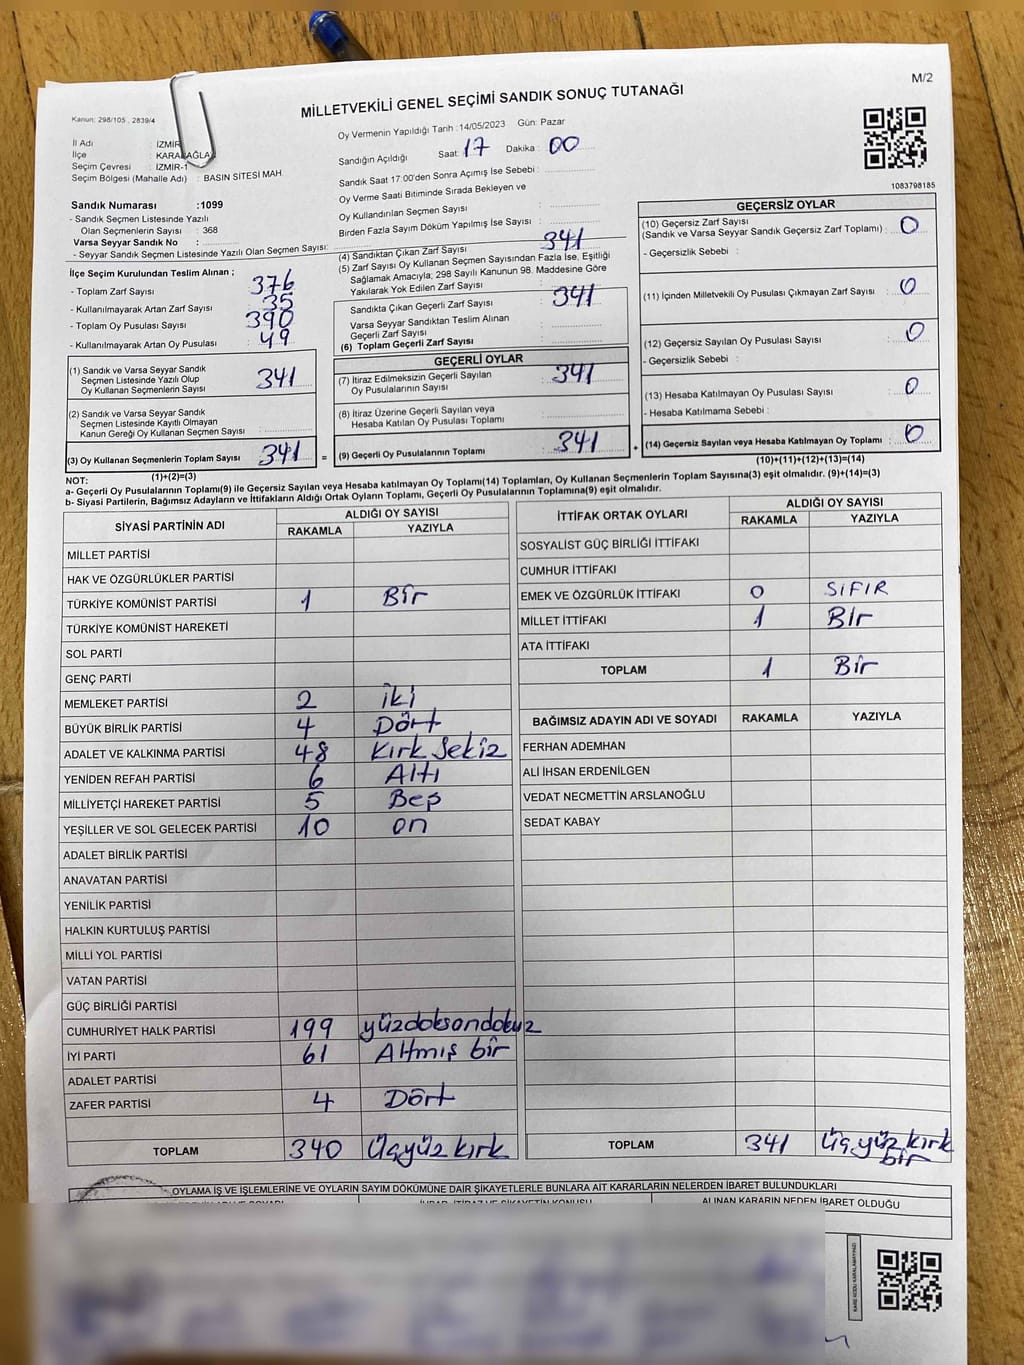 M/2
MİLLETVEKİLİ GENEL SEÇİMİ SANDIK SONUÇ TUTANAĞI
Kanun: 298/105 , 2839/4
Oy Vermenin Yapıldığı Tarih :14/05/2023 Gün: Pazar
İl Adı : İZMİR
İlçe : KARABAĞLAR
Seçim Çevresi : İZMİR-1
Seçim Bölgesi (Mahalle Adı) : BASIN SİTESİ MAH.
Sandığın Açıldığı Saat: 17 Dakika: 00
Sandık Saat 17:00'den Sonra Açımış İse Sebebi :
Oy Verme Saati Bitiminde Sırada Bekleyen ve
Oy Kullandırılan Seçmen Sayısı :
Birden Fazla Sayım Döküm Yapılmış İse Sayısı :
1083798185
Sandık Numarası :1099
- Sandık Seçmen Listesinde Yazılı
Olan Seçmenlerin Sayısı : 368
Varsa Seyyar Sandık No :
- Seyyar Sandık Seçmen Listesinde Yazılı Olan Seçmen Sayısı:
İlçe Seçim Kurulundan Teslim Alınan ;
- Toplam Zarf Sayısı : 376
- Kullanılmayarak Artan Zarf Sayısı : 35
- Toplam Oy Pusulası Sayısı : 390
- Kullanılmayarak Artan Oy Pusulası : 49
(1) Sandık ve Varsa Seyyar Sandık
Seçmen Listesinde Yazılı Olup
Oy Kullanan Seçmenlerin Sayısı : 341
(2) Sandık ve Varsa Seyyar Sandık
Seçmen Listesinde Kayıtlı Olmayan
Kanun Gereği Oy Kullanan Seçmen Sayısı :
(3) Oy Kullanan Seçmenlerin Toplam Sayısı : 341 =
(1)+(2)=(3)
(4) Sandıktan Çıkan Zarf Sayısı : 341
(5) Zarf Sayısı Oy Kullanan Seçmen Sayısından Fazla İse, Eşitliği
Sağlamak Amacıyla; 298 Sayılı Kanunun 98. Maddesine Göre
Yakılarak Yok Edilen Zarf Sayısı :
Sandıkta Çıkan Geçerli Zarf Sayısı : 341
Varsa Seyyar Sandıktan Teslim Alınan
Geçerli Zarf Sayısı :
(6) Toplam Geçerli Zarf Sayısı :
GEÇERLİ OYLAR
(7) İtiraz Edilmeksizin Geçerli Sayılan
Oy Pusulalarının Sayısı : 341
(8) İtiraz Üzerine Geçerli Sayılan veya
Hesaba Katılan Oy Pusulası Toplamı :
(9) Geçerli Oy Pusulalarının Toplamı : 341 +
GEÇERSİZ OYLAR
(10) Geçersiz Zarf Sayısı
(Sandık ve Varsa Seyyar Sandık Geçersiz Zarf Toplamı) : 0
- Geçersizlik Sebebi :
(11) İçinden Milletvekili Oy Pusulası Çıkmayan Zarf Sayısı : 0
(12) Geçersiz Sayılan Oy Pusulası Sayısı : 0
- Geçersizlik Sebebi :
(13) Hesaba Katılmayan Oy Pusulası Sayısı : 0
- Hesaba Katılmama Sebebi :
(14) Geçersiz Sayılan veya Hesaba Katılmayan Oy Toplamı : 0
(10)+(11)+(12)+(13)=(14)
NOT:
a- Geçerli Oy Pusulalarının Toplamı(9) ile Geçersiz Sayılan veya Hesaba Katılmayan Oy Toplamı(14) Toplamları, Oy Kullanan Seçmenlerin Toplam Sayısına(3) eşit olmalıdır. (9)+(14)=(3)
b- Siyasi Partilerin, Bağımsız Adayların ve İttifakların Aldığı Ortak Oyların Toplamı, Geçerli Oy Pusulalarının Toplamına(9) eşit olmalıdır.
SİYASİ PARTİNİN ADI ALDIĞI OY SAYISI
RAKAMLA YAZIYLA
MİLLET PARTİSİ
HAK VE ÖZGÜRLÜKLER PARTİSİ
TÜRKİYE KOMÜNİST PARTİSİ 1 Bir
TÜRKİYE KOMÜNİST HAREKETİ
SOL PARTİ
GENÇ PARTİ
MEMLEKET PARTİSİ 2 iki
BÜYÜK BİRLİK PARTİSİ 4 Dört
ADALET VE KALKINMA PARTİSİ 48 Kırk Sekiz
YENİDEN REFAH PARTİSİ 6 Altı
MİLLİYETÇİ HAREKET PARTİSİ 5 Beş
YEŞİLLER VE SOL GELECEK PARTİSİ 10 on
ADALET BİRLİK PARTİSİ
ANAVATAN PARTİSİ
YENİLİK PARTİSİ
HALKIN KURTULUŞ PARTİSİ
MİLLİ YOL PARTİSİ
VATAN PARTİSİ
GÜÇ BİRLİĞİ PARTİSİ
CUMHURİYET HALK PARTİSİ 199 yüzdoksandokuz
İYİ PARTİ 61 Altmış bir
ADALET PARTİSİ
ZAFER PARTİSİ 4 Dört
TOPLAM 340 Üçyüz kırk
İTTİFAK ORTAK OYLARI ALDIĞI OY SAYISI
RAKAMLA YAZIYLA
SOSYALİST GÜÇ BİRLİĞİ İTTİFAKI
CUMHUR İTTİFAKI
EMEK VE ÖZGÜRLÜK İTTİFAKI 0 SIFIR
MİLLET İTTİFAKI 1 Bir
ATA İTTİFAKI
TOPLAM 1 Bir
BAĞIMSIZ ADAYIN ADI VE SOYADI RAKAMLA YAZIYLA
FERHAN ADEMHAN
ALİ İHSAN ERDENİLGEN
VEDAT NECMETTİN ARSLANOĞLU
SEDAT KABAY
TOPLAM 341 Üçyüz kırk
bir
OYLAMA İŞ VE İŞLEMLERİNE VE OYLARIN SAYIM DÖKÜMÜNE DAİR ŞİKAYETLERLE BUNLARA AİT KARARLARIN NELERDEN İBARET BULUNDUKLARI
İHBAR, İTİRAZ VE ŞİKAYETİN KONUSU ALINAN KARARIN NEDEN İBARET OLDUĞU